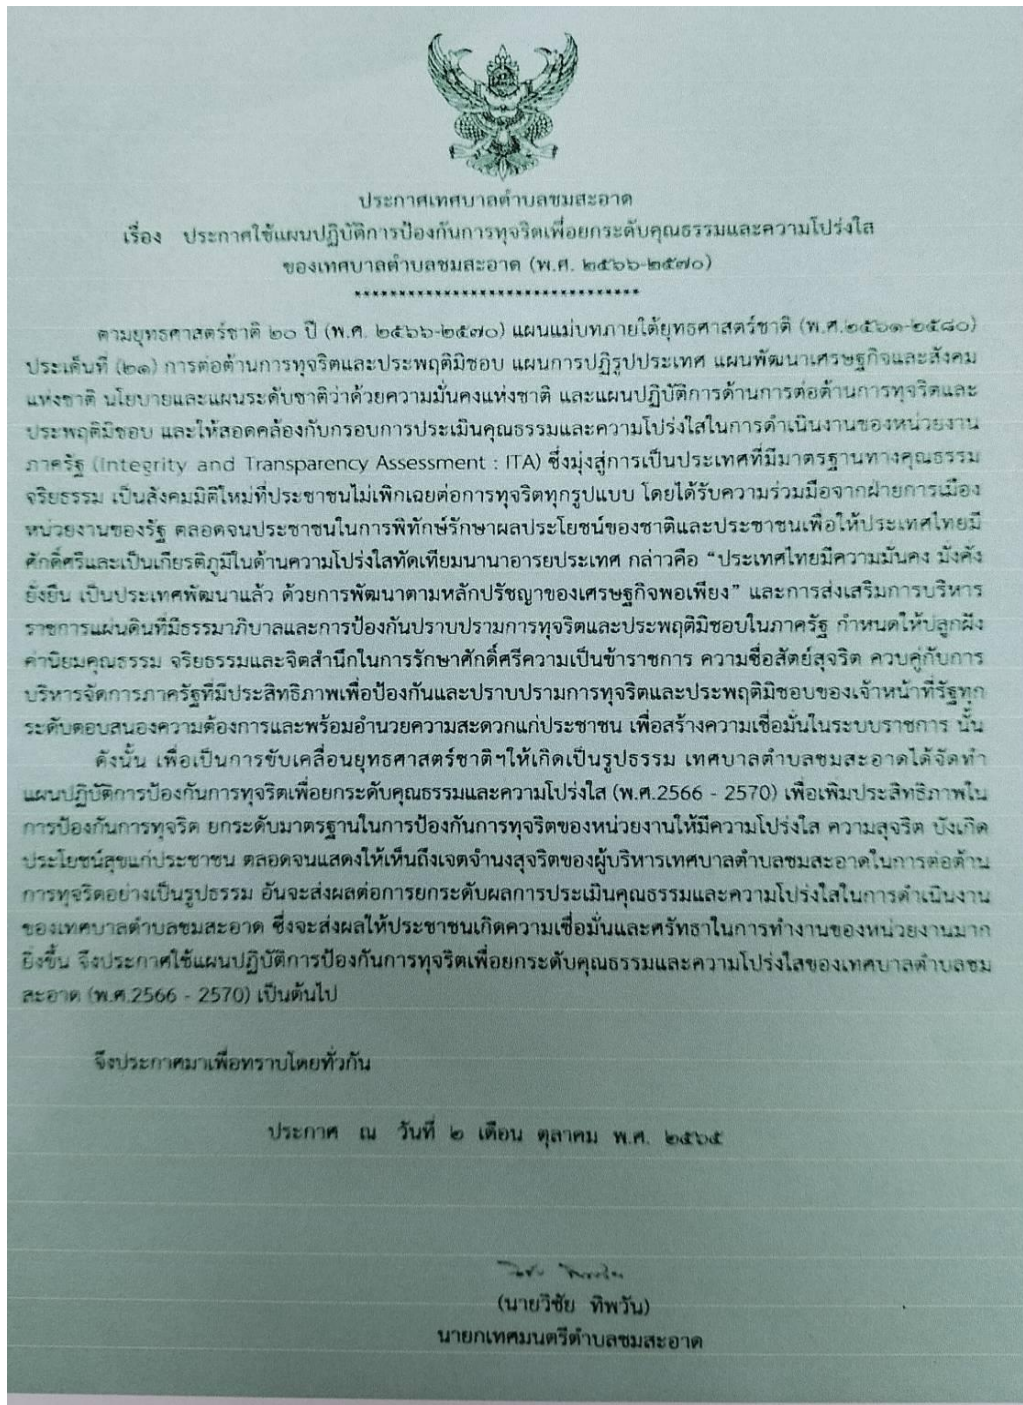 ประกาศเทศบาลตำบลชมสะอาด
เรื่อง ประกาศใช้แผนปฏิบัติการป้องกันการทุจริตเพื่อยกระดับคุณธรรมและความโปร่งใส
ของเทศบาลตำบลชมสะอาด (พ.ศ. ๒๕๖๖-๒๕๗๐)
*******************************
ตามยุทธศาสตร์ชาติ ๒๐ ปี (พ.ศ. ๒๕๖๖-๒๕๗๐) แผนแม่บทภายใต้ยุทธศาสตร์ชาติ (พ.ศ.๒๕๖๑-๒๕๘๐)
ประเด็นที่ (๒๑) การต่อต้านการทุจริตและประพฤติมิชอบ แผนการปฏิรูปประเทศ แผนพัฒนาเศรษฐกิจและสังคม
แห่งชาติ นโยบายและแผนระดับชาติว่าด้วยความมั่นคงแห่งชาติ และแผนปฏิบัติการด้านการต่อต้านการทุจริตและ
ประพฤติมิชอบ และให้สอดคล้องกับกรอบการประเมินคุณธรรมและความโปร่งใสในการดำเนินงานของหน่วยงาน
ภาครัฐ (Integrity and Transparency Assessment : ITA) ซึ่งมุ่งสู่การเป็นประเทศที่มีมาตรฐานทางคุณธรรม
จริยธรรม เป็นสังคมมิติใหม่ที่ประชาชนไม่เพิกเฉยต่อการทุจริตทุกรูปแบบ โดยได้รับความร่วมมือจากฝ่ายการเมือง
หน่วยงานของรัฐ ตลอดจนประชาชนในการพิทักษ์รักษาผลประโยชน์ของชาติและประชาชนเพื่อให้ประเทศไทยมี
ศักดิ์ศรีและเป็นเกียรติภูมิในด้านความโปร่งใสทัดเทียมนานาอารยประเทศ กล่าวคือ “ประเทศไทยมีความมั่นคง มั่งคั่ง
ยั่งยืน เป็นประเทศพัฒนาแล้ว ด้วยการพัฒนาตามหลักปรัชญาของเศรษฐกิจพอเพียง” และการส่งเสริมการบริหาร
ราชการแผ่นดินที่มีธรรมาภิบาลและการป้องกันปราบปรามการทุจริตและประพฤติมิชอบในภาครัฐ กำหนดให้ปลูกฝัง
ค่านิยมคุณธรรม จริยธรรมและจิตสำนึกในการรักษาศักดิ์ศรีความเป็นข้าราชการ ความซื่อสัตย์สุจริต ควบคู่กับการ
บริหารจัดการภาครัฐที่มีประสิทธิภาพเพื่อป้องกันและปราบปรามการทุจริตและประพฤติมิชอบของเจ้าหน้าที่รัฐทุก
ระดับตอบสนองความต้องการและพร้อมอำนวยความสะดวกแก่ประชาชน เพื่อสร้างความเชื่อมั่นในระบบราชการ นั้น
ดังนั้น เพื่อเป็นการขับเคลื่อนยุทธศาสตร์ชาติฯให้เกิดเป็นรูปธรรม เทศบาลตำบลชมสะอาดได้จัดทำ
แผนปฏิบัติการป้องกันการทุจริตเพื่อยกระดับคุณธรรมและความโปร่งใส (พ.ศ.2566 - 2570) เพื่อเพิ่มประสิทธิภาพใน
การป้องกันการทุจริต ยกระดับมาตรฐานในการป้องกันการทุจริตของหน่วยงานให้มีความโปร่งใส ความสุจริต บังเกิด
ประโยชน์สุขแก่ประชาชน ตลอดจนแสดงให้เห็นถึงเจตจำนงสุจริตของผู้บริหารเทศบาลตำบลชมสะอาดในการต่อต้าน
การทุจริตอย่างเป็นรูปธรรม อันจะส่งผลต่อการยกระดับผลการประเมินคุณธรรมและความโปร่งใสในการดำเนินงาน
ของเทศบาลตำบลชมสะอาด ซึ่งจะส่งผลให้ประชาชนเกิดความเชื่อมั่นและศรัทธาในการทำงานของหน่วยงานมาก
ยิ่งขึ้น จึงประกาศใช้แผนปฏิบัติการป้องกันการทุจริตเพื่อยกระดับคุณธรรมและความโปร่งใสของเทศบาลตำบลชม
สะอาด (พ.ศ.2566 - 2570) เป็นต้นไป
จึงประกาศมาเพื่อทราบโดยทั่วกัน
ประกาศ ณ วันที่ ๒ เดือน ตุลาคม พ.ศ. ๒๕๖๕
(นายวิชัย ทิพวัน)
นายกเทศมนตรีตำบลชมสะอาด